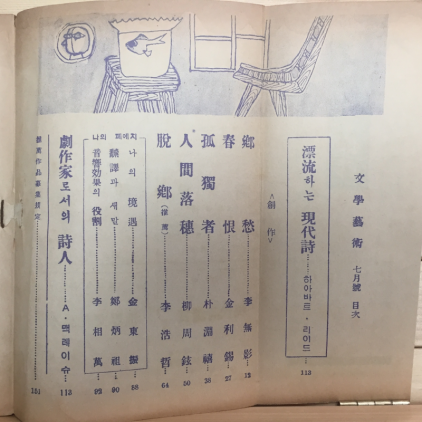 文學藝術 七月號 目次
漂流하는 現代詩……하아바트・리이드……113
<創作>
鄕愁……李無影……12
春恨……金利錫……27
孤獨者……朴淵禧……38
人間落穗……柳周鉉……50
脫鄕(推薦)……李浩哲……64
나의 메모지
나의 境遇……金東
飜譯과 새맘……鄭炳祖……90
音響效果의 役割……李相萬……92
劇作家로서의 詩人……A・맥레이슈……113